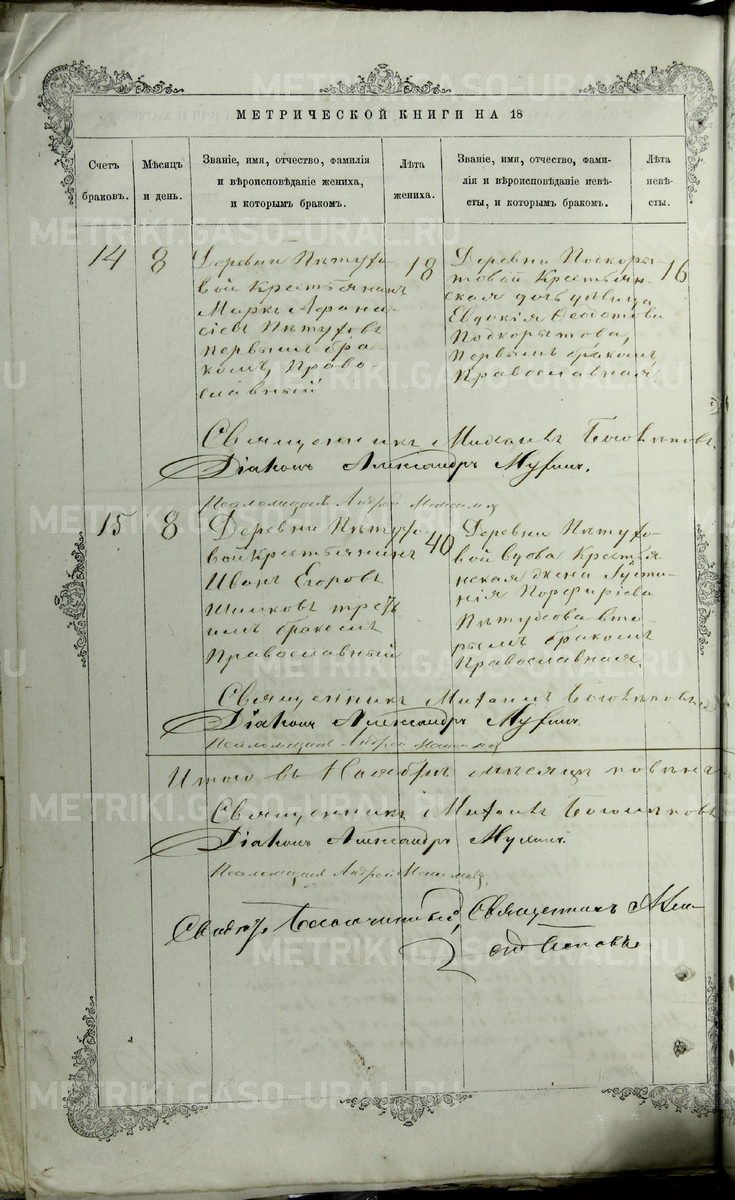 МЕТРИЧЕСКОЙ КНИГИ НА 18
Счетъ браковъ.
Мѣсяцъ и день.
Званіе, имя, отчество, фамилія
и вѣроисповѣданіе жениха,
и которымъ бракомъ.
Лѣта жениха.
Званіе, имя, отчество, фами-
лія и вѣроисповѣданіе невѣ-
сты, и которымъ бракомъ.
Лѣта невѣ-
сты.
14
8
Деревни Пѣтухо-
вой Крестьянинъ
Маркъ Афана-
сіевъ Пѣтуховъ
первымъ бра-
комъ, Право-
славный
18
Деревни Подкоры-
товой Крестьян-
ская дочь дѣвица
Евдокія Ѳеодотова
Подкорытова,
Первымъ бракомъ
Православная
16
Священникъ Михаилъ
Діаконъ Александръ Мухинъ.
Псаломщикъ Андрей
15
8
Деревни Пѣтухо-
вой Крестьянинъ
Иванъ Егоровъ
Шишковъ треть
имъ бракомъ
Православный
40
Деревни Пѣтухо-
вой Вдова Крестья-
нская жена Густи-
нія Порфирьева
Пѣтухова вто-
рымъ бракомъ
Православная.
Священникъ Михаилъ
Діаконъ Александръ Мухинъ
Псаломщикъ Андрей
Итого въ Ноябрѣ мѣсяцѣ
Священникъ Михаилъ
Діаконъ Александръ Мухинъ.
Псаломщикъ Андрей
Благочинный, Священникъ
Поповъ
METRIKI.GASO-URAL.RU